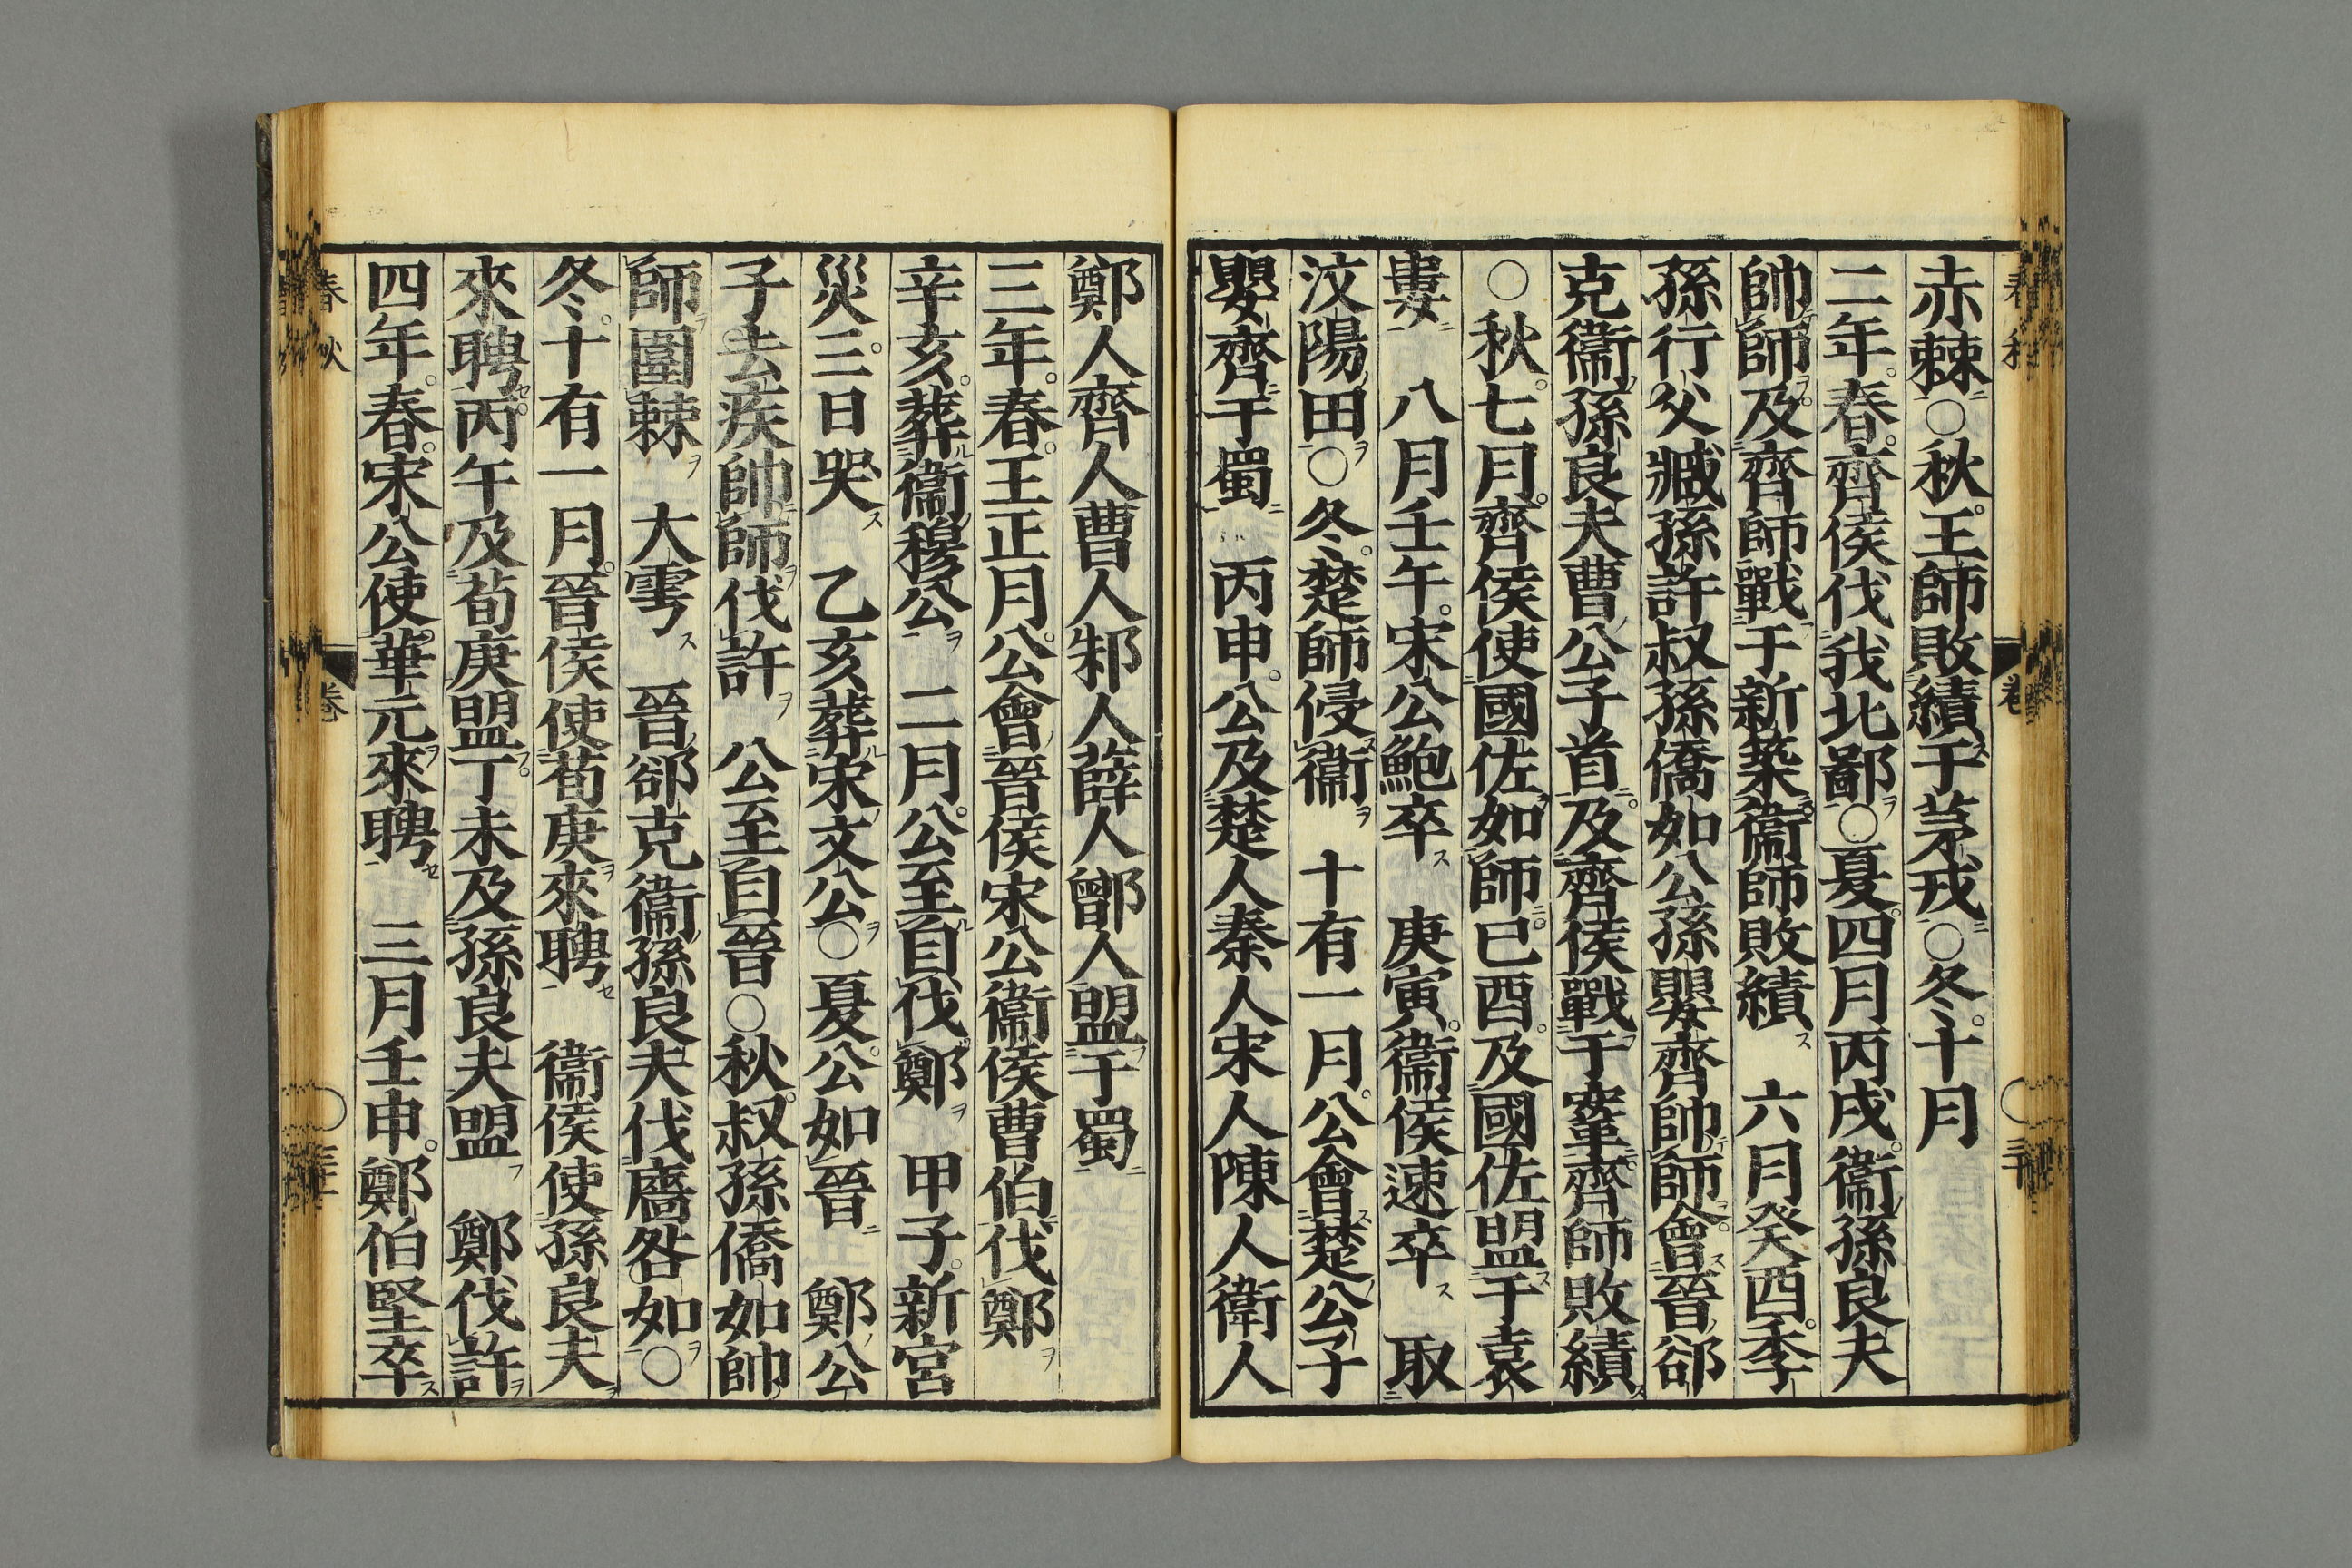 赤棘○秋王師敗績于茅戎○冬十月
二年春齊侯伐我北鄙○夏四月丙戌衞孫良夫
帥師及齊師戰于新築衞師敗績 六月癸酉季
孫行父臧孫許叔孫僑如公孫嬰齊帥師會晉郤
克衞孫良夫曹公子首及齊侯戰于鞌齊師敗績
○秋七月齊侯使國佐如師己酉及國佐盟于袁
婁 八月壬午宋公鮑卒 庚寅衞侯速卒 取
汶陽田○冬楚師侵衞 十有一月公會楚公子
嬰齊于蜀 丙申公及楚人秦人宋人陳人衛人
鄭人齊人曹人邾人薛人鄫人盟于蜀
三年春王正月公會晉侯宋公衞侯曹伯伐鄭
辛亥葬衞穆公 二月公至自伐鄭 甲子新宮
災三日哭 乙亥葬宋文公○夏公如晉 鄭公
子去疾帥師伐許 公至自晉○秋叔孫僑如帥
師圍棘 大雩 晉郤克衞孫良夫伐廧咎如○
冬十有一月晉侯使荀庚來聘 衞侯使孫良夫
來聘丙午及荀庚盟丁未及孫良夫盟 鄭伐許
四年春宋公使華元來聘 三月壬申鄭伯堅卒
春秋 卷